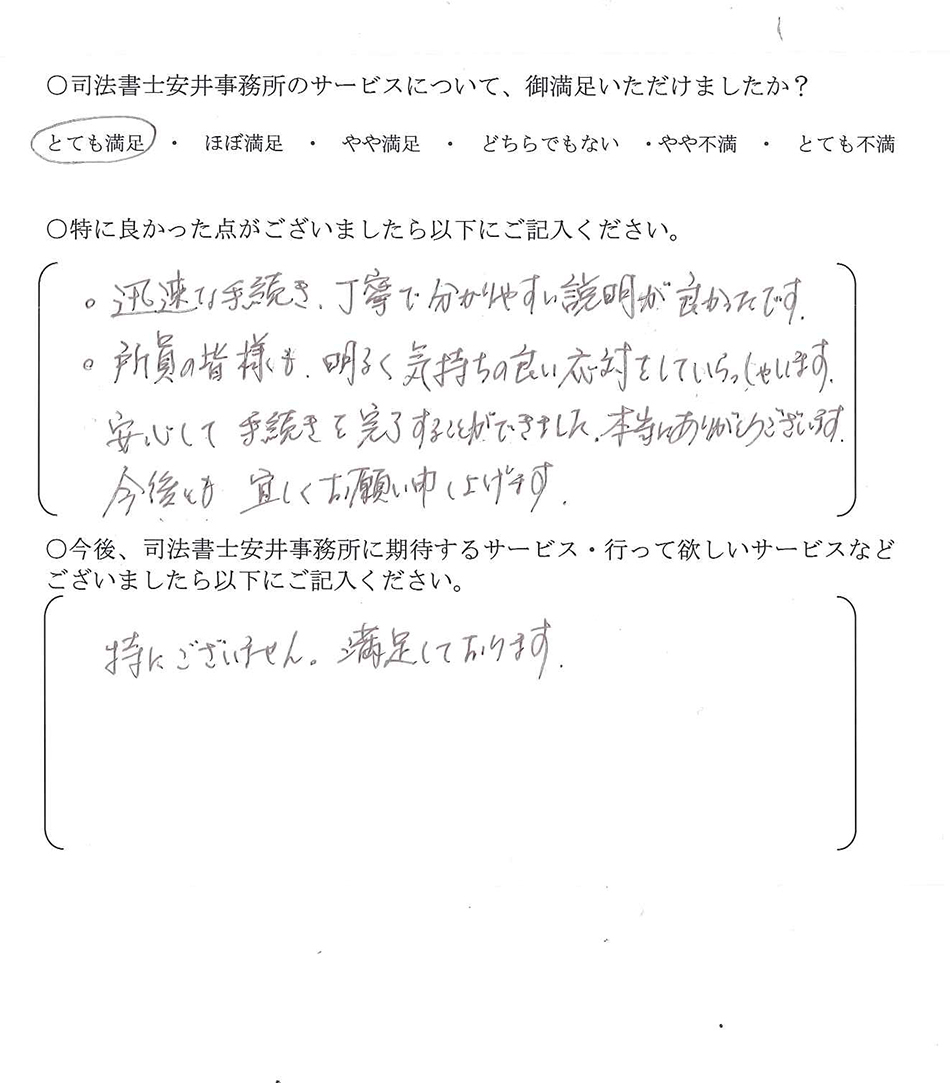 ○司法書士安井事務所のサービスについて、御満足いただけましたか？
とても満足 ・ ほぼ満足 ・ やや満足 ・ どちらでもない ・やや不満 ・ とても不満
○特に良かった点がございましたら以下にご記入ください。
。迅速な手続き、丁寧で分かりやすい説明が良かったです。
。所員の皆様も、明るく気持ちの良い応対をしていらっしゃいます。
安心して手続きを完了することができました。本当にありがとうございます。
今後とも 宜しくお願い申し上げます。
○今後、司法書士安井事務所に期待するサービス・行って欲しいサービスなど
ございましたら以下にご記入ください。
特にございません。満足しております。